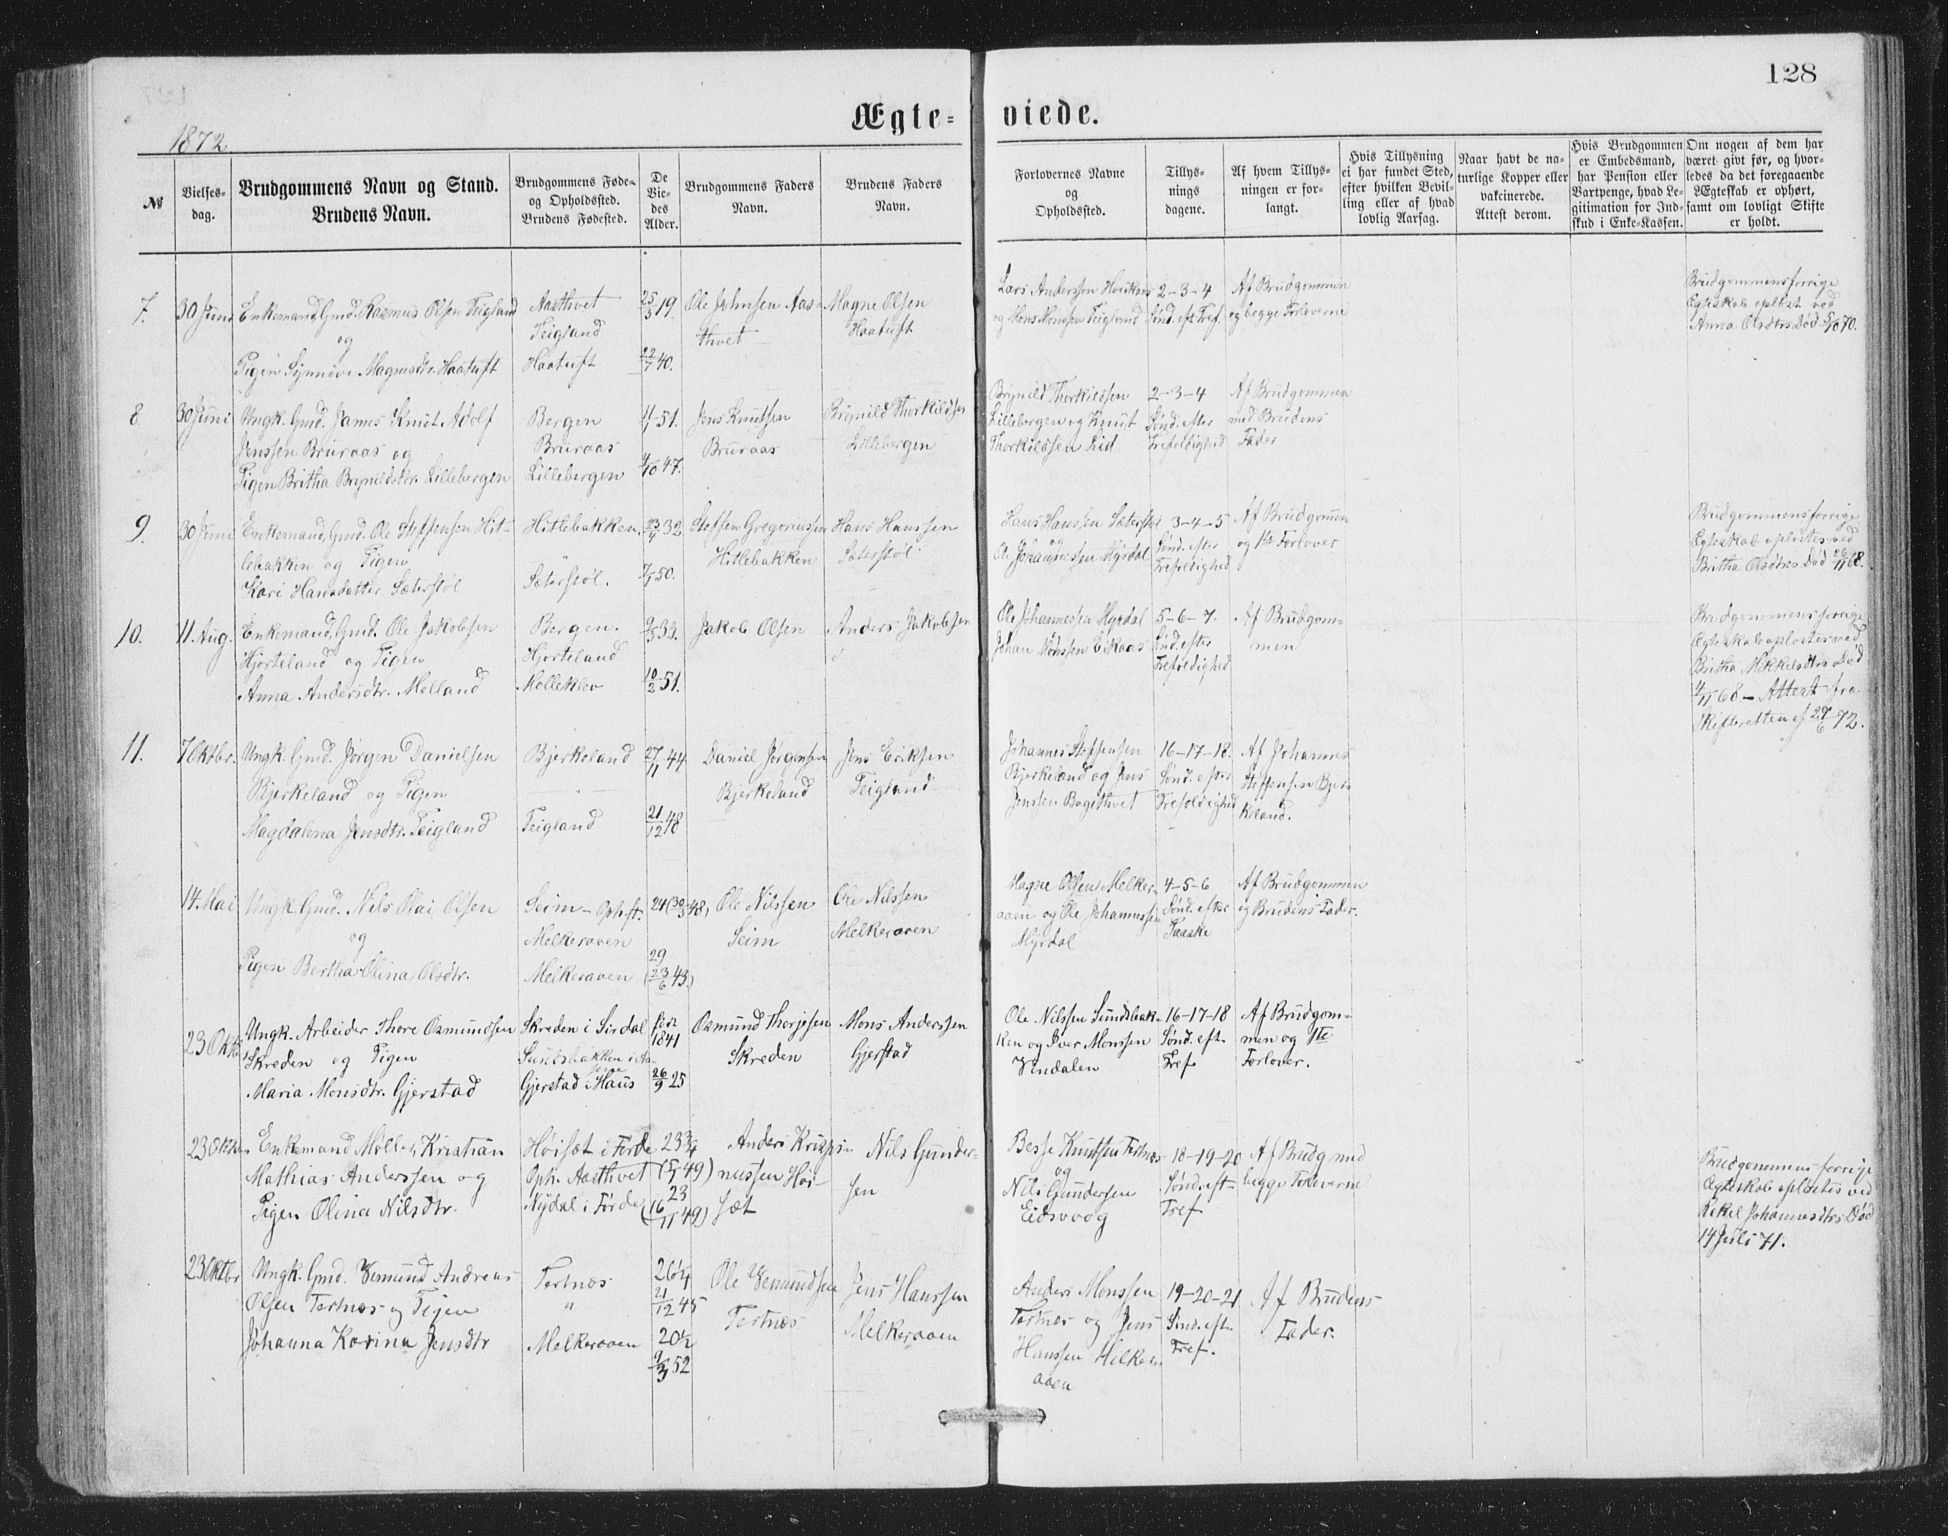 128
Ægte- viede.
1872
№
Vielses-
dag.
Brudgommens Navn og Stand.
Brudens Navn.
Brudgommens Føde-
og Opholdssted.
Brudens Fødested.
De
Vie-
des
Alder.
Brudgommens Faders
Navn.
Brudens Faders
Navn.
Forlovernes Navne
og
Opholdssted.
Tillys-
nings
dagene.
Af hvem Tillys-
ningen er for-
langt.
Hvis Tillysning
ei har fundet Sted,
efter hvilken Bevil-
ling eller af hvad
lovlig Aarsag.
Naar havt de na-
turlige Kopper eller
vakcinerede.
Attest derom.
Hvis Brudgommen
er Embedsmand,
har Pension eller
Vartpenge, hvad Le-
gitimation for Ind-
skud i Enke-Kassen.
Om nogen af dem har
været gift før, og hvor-
ledes da det foregaaende
Ægteskab er ophørt,
samt om lovligt Skifte
er holdt.
7. 30 Juni
Enkemand, Gmd. Rasmus Olsen Teigland
og
Pigen Synneve Magnesdtr. Haatuft
Aasthvet
Teigland
Haatuft
25/5 19
22/7 40.
Ole Johnsen Aas-
thvet
Magne Olsen
Haatuft
Lars Anderssen
og Mons Monssen Teigland
2-3-4
Sønd. eft Tref.
Af Brudgommen
og begge Forloverne
Brudgommens forrige
Egteskab opløst ved
Anna Olsdtrs Død 5/10 70.
8. 30 Juni
Ungk. Gmd. James Knut Adolf
Jenssen Bruraas og
Pigen Britha Brynildsdtr. Lillebergen
Bergen
Bruraas
Lillebergen
4/7 51.
4/10 47.
Jens Knutsen
Bruraas
Brynild Thorkildsen
Lillebergen
Brynild Thorkildsen
Lillebergen og Knut
Thorkildssen Lid
2-3-4
Sønd. efter
Trefoldighed
Af Brudgommen
med Brudens
Fader
9. 30 Juni
Enkemand, Gmd. Ole Steffensen Hit-
lebakken og Pigen
Kari Hansdatter Sæterstøl
Hitlebakken.
"
Sæterstøl.
23/4 32
7/7 50.
Steffen Gregoriussen
Hitlebakken
Hans Hanssen
Sæterstøl
Hans Hanssen Sæterstøl
og
Ol. Johannessen Myrdal
3-4-5
Sønd. efter
Trefoldighed
Af Brudgommen
og 1te Forlover
Brudgommens forrige
Egteskab opløstes ved
Britha Olsdtrs Død 26/11 68.
10. 11 Aug.
Enkemand, Gmd. Ole Jakobsen
Hjorteland og Pigen
Anna Andersdtr. Melland
Bergen.
Hjorteland
Molleklev
9/5 33.
10/2 51.
Jakob Olsen
Anders Jakobsen
Ole Johannessen Myrdal
Johan Monssen Eikaas
5-6-7.
Sønd. efter
Trefoldighed
Af Brudgom-
men
Brudgommens forrige
Egteskab opløstes ved
Britha Mikkelsdtrs Død
4/11 68 - Attest fra
Skifteretten af 27/6 72.
11. 7 Oktbr.
Ungk. Gmd. Jørgen Danielsen
Bjerkeland og Pigen
Magdalena Jensdtr. Teigland
Bjerkeland
"
Teigland
27/11 44
21/12 48
Daniel Jørgensen
Bjerkeland
Jens Eriksen
Teigland
Johannes Steffensen
Bjerkeland og Jens
Jenssen Bogethvet
16-17-18.
Sønd. efter
Trefoldighed
Af Johannes
Steffensen Bjer-
keland.
14. Mai
Ungk. Gmd. Nils Olai Olsen
og
Pigen Bertha Olina Olsdtr.
Seim - Oph.st.
Melkeraaen
Melkeraaen
24 (30/5 48)
29
(23/6 43)
Ole Nilssen
Seim
Ole Nilssen
Melkeraaen
Magne Olsen Melker-
aaen og Ole Johannessen
Myrdal
4-5-6
Sønd. efter
Paaske
Af Brudgommen
og Brudens Fader.
23 Oktbr
Ungk. Arbeider Thore Osmundsen
Skreden og Pigen
Maria Monsdtr. Gjerstad
Skreden i Sirdal
Gjerstad i Haus
født
1841
26/9 25
Osmund Thorjssen
Skreden
Mons Anderssen
Gjerstad
Ole Nilssen Sundsbak-
ken og Iver Monssen
Vendalen
16-17-18
Sønd. eft-
Tref
Af Brudgom-
men og 1te
Forlover.
23 Oktbr
Enkemand Møller Kristian
Mathias Anderssen og
Pigen Olina Nilsdtr.
Høisæt i Førde
Oph. Aasthvet
Nydal i Førde
23 3/4
(5/1 49)
23
(16/11 49)
Anders Krispi-
nussen Høi-
sæt
Nils Gunder-
sen
Besse Knutsen Tertnæs
og
Nils Gundersen
Eidsvaag
18-19-20
Sønd. eft-
Tref
Af Brudg med
begge Forloverne
Brudgommens forrige
Egteskab opløstes ved
Rakel Johannesdtrs Død
14 Juli 71.
23 Oktbr
Ungk. Gmd. Vemund Andreas
Olsen Tertnæs og Pigen
Johanna Karina Jensdtr
Tertnæs
"
Melkeraaen
26 3/4
21/12 45
20 1/2
9/3 52
Ole Vemundsen
Tertnæs
Jens Hanssen
Melkeraaen
Anders Monssen
Tertnæs og Jens
Hanssen Melker-
aaen
19-20-21
Sønd. eft-
Tref.
Af Brudens
Fader.